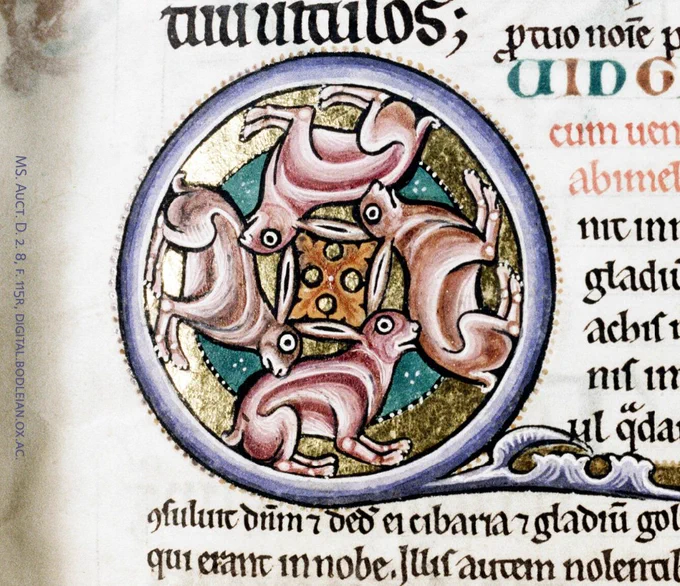 MS. AUCT. D. 2. 8, F. 115R, DIGITAL.BODLEIAN.OX.AC.
ꝓ tuo noīe p
cum uen
abimel
nit inn
gladiū
achis
nis im
ul q̄da
ꝯsuluit dn̄m ⁊ ded' ei cibaria ⁊ gladiū gol
qui erant in nobe. Illis autem nolentib